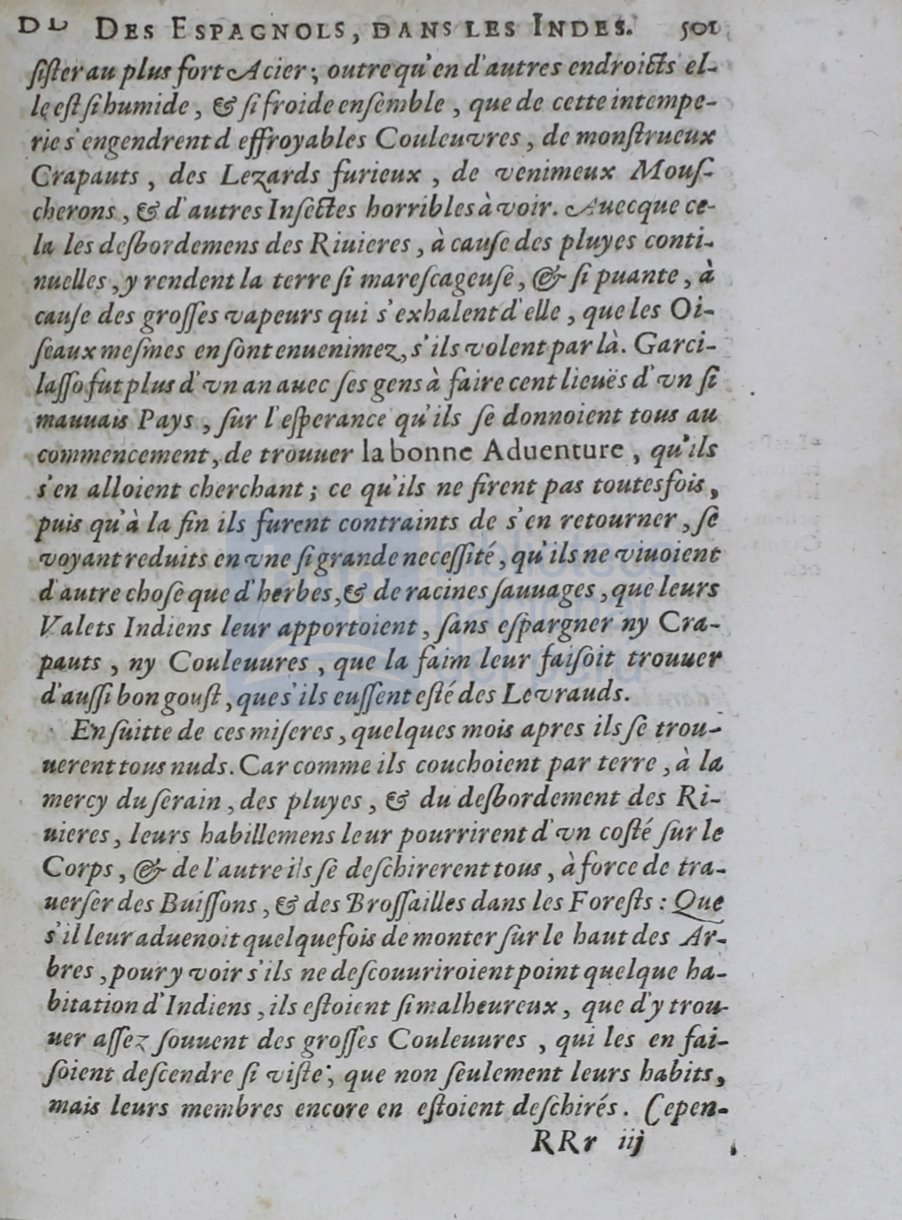 DES ESPAGNOLS, DANS LES INDES. 501
ſiſter au plus fort Acier; outre qu'en d'autres endroićts el-
le eſt ſi humide, & ſi froide enſemble, que de cette intempe-
rie s'engendrent d effroyables Couleuvres, de monſtrueux
Crapauts, des Lezards furieux, de venimeux Mouſ-
cherons, & d'autres Inſectes horribles à voir. Auecque ce-
la les deſbordemens des Riuieres, à cauſe des pluyes conti-
nuelles, y rendent la terre ſi mareſcageuſe, & ſi puante, à
cauſe des groſſes vapeurs qui s'exhalent d'elle, que les Oi-
ſeaux meſmes en ſont enuenimez, s'ils volent par là. Garci-
laſſo fut plus d'vn an auec ſes gens à faire cent lieuës d'vn ſi
mauuais Pays, ſur l'eſperance qu'ils ſe donnoient tous au
commencement, de trouuer la bonne Aduenture, qu'ils
s'en alloient cherchant; ce qu'ils ne firent pas toutesfois,
puis qu'à la fin ils furent contraints de s'en retourner, ſe
voyant reduits en vne ſi grande neceſſité, qu'ils ne viuoient
d'autre choſe que d'herbes, & de racines ſauuages, que leurs
Valets Indiens leur apportoient, ſans eſpargner ny Cra-
pauts, ny Couleuures, que la faim leur faiſoit trouuer
d'auſſi bon gouſt, que s'ils euſſent eſté des Levrauds.
En ſuitte de ces miſeres, quelques mois apres ils ſe trou-
uerent tous nuds. Car comme ils couchoient par terre, à la
mercy du ſerain, des pluyes, & du deſbordement des Ri-
uieres, leurs habillemens leur pourrirent d'vn coſté ſur le
Corps, & de l'autre ils ſe deſchirerent tous, à force de tra-
uerſer des Buiſſons, & des Broſſailles dans les Foreſts: Que
s'il leur aduenoit quelquefois de monter ſur le haut des Ar-
bres, pour y voir s'ils ne deſcouuriroient point quelque ha-
bitation d'Indiens, ils eſtoient ſi malheureux, que d'y trou-
uer aſſez ſouuent des groſſes Couleuures, qui les en fai-
ſoient deſcendre ſi viſte, que non ſeulement leurs habits,
mais leurs membres encore en eſtoient deſchirés. Cepen-
RRr iij